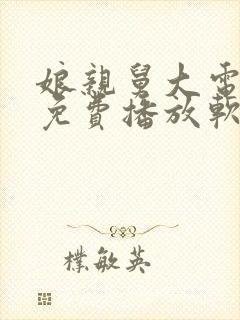 娘親舅大電
免費播放軟
樸敏英